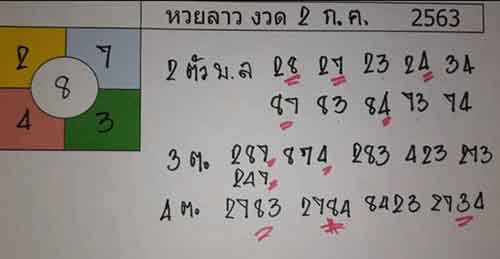 หวยลาว งวด 2 ก.ค. 2563
2 7
8
4 3
2 ตัว บ.ล 28 27 23 24 34
87 83 84 73 74
3 ต. 287 874 283 423 273
247
4 ต. 2783 2784 8423 2734